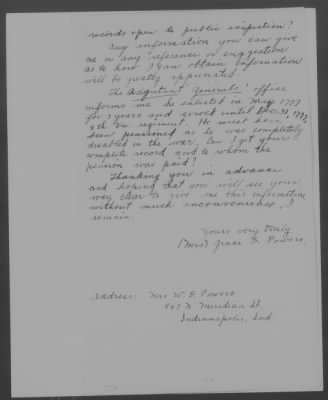 records open to public inspection?
Any information you can give
me or any reference or suggestion
as to how I can obtain information
will be greatly appreciated.
The Adjutant Generals' office
informs me he enlisted in May 1777
for 3 years and served until Dec. 31, 1777,
8th Va regiment. He must have
been pensioned as he was completely
disabled in the war. Can I get your
complete record and to whom the
pension was paid?
Thanking you in advance
and hoping that you will see your
way clear to give me this information
without much inconvenience, I
remain.
Yours very truly
(Mrs) Grace Powers,
Address: Mrs W. B. Powers
N Meridian St,
Indianapolis, Ind